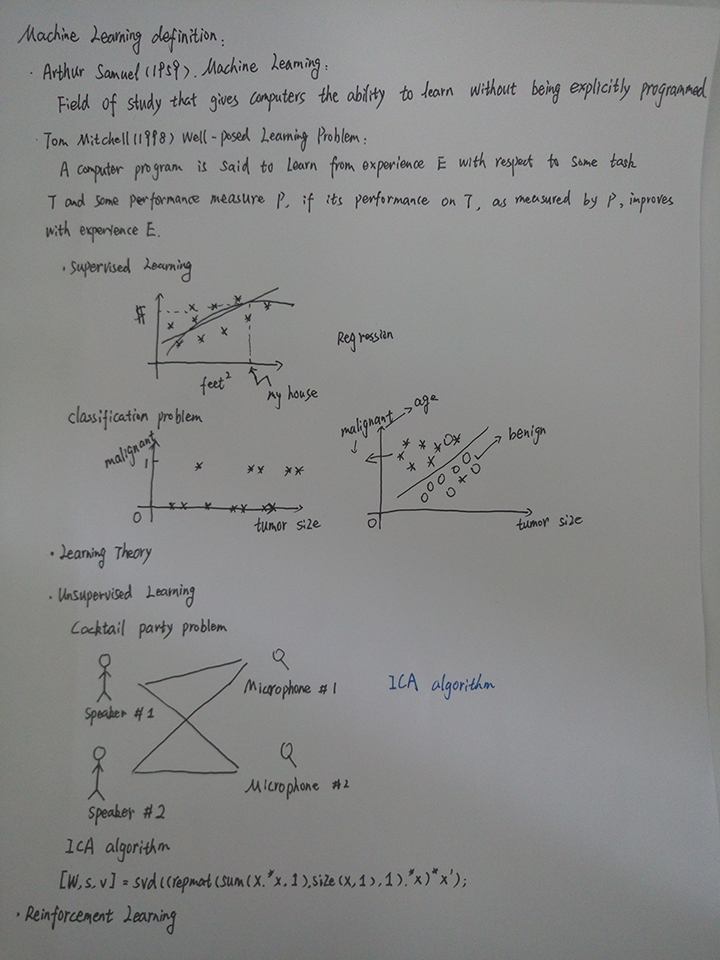 Machine Learning definition:
· Arthur Samuel (1959). Machine Learning:
Field of study that gives computers the ability to learn without being explicitly programmed
· Tom Mitchell (1998) Well-posed Learning Problem:
A computer program is said to learn from experience E with respect to some task
T and some performance measure P, if its performance on T, as measured by P, improves
with experience E.
· Supervised Learning
$
Regression
feet²
my house
Classification problem
malignant
1
0
tumor size
malignant
age
benign
0
tumor size
· Learning Theory
· Unsupervised Learning
Cocktail party problem
Microphone #1
ICA algorithm
Speaker #1
Microphone #2
Speaker #2
ICA algorithm
[W,s,v] = svd((repmat(sum(x.*x,1),size(x,1),1).*x)*x');
· Reinforcement Learning